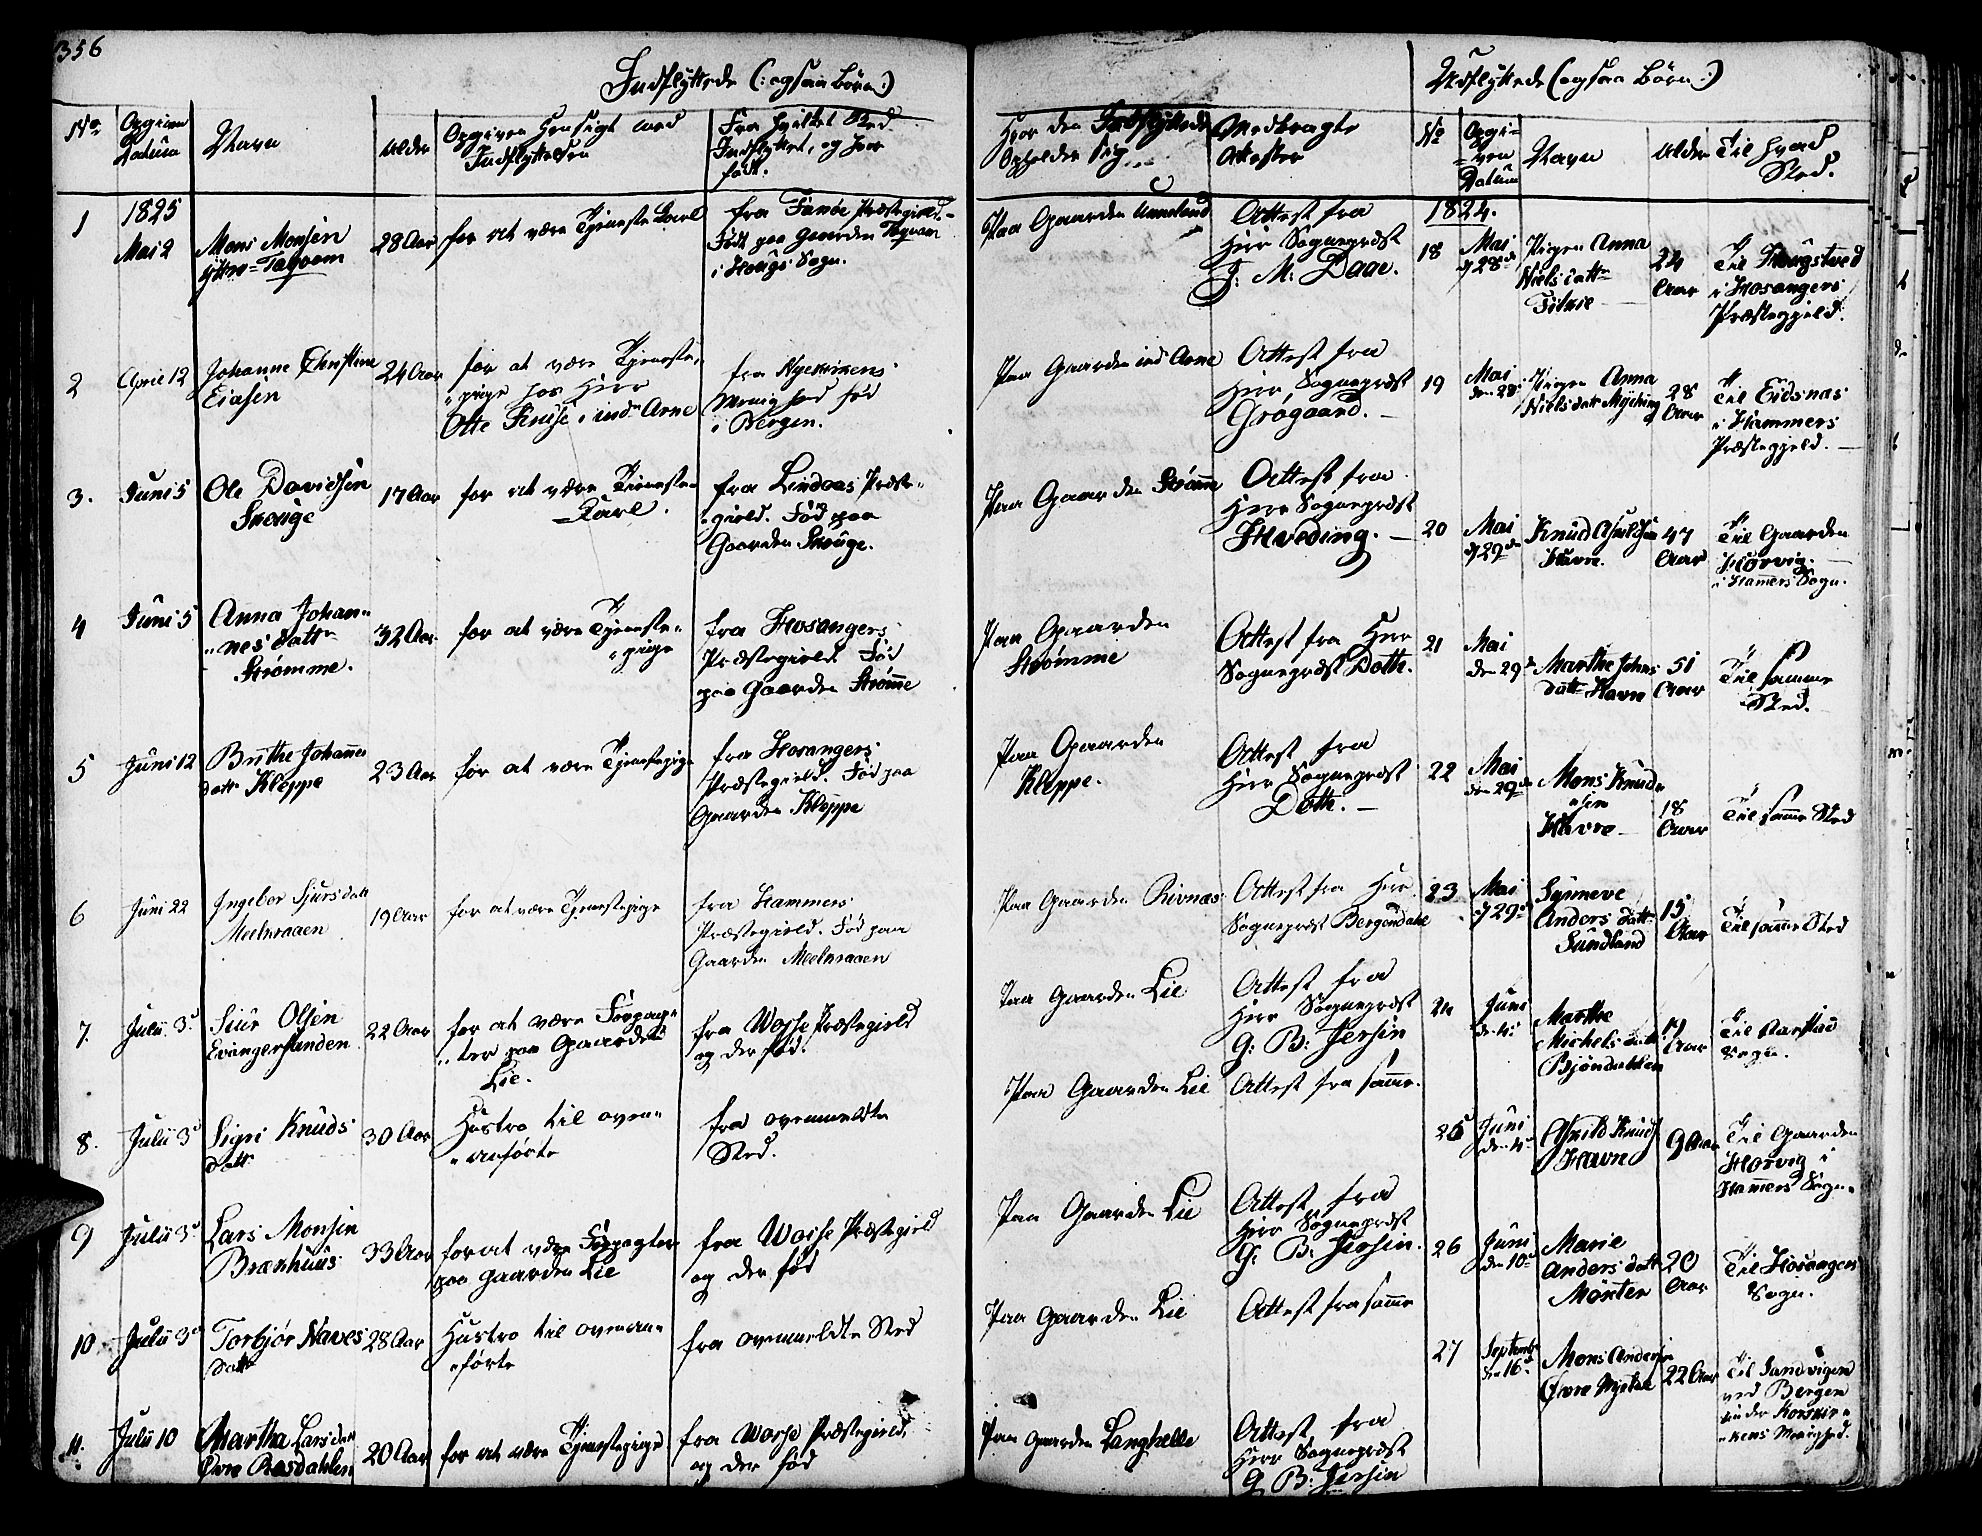 356
Indflyttede (: ogsaa Börn :)
No
Opgiven Datum
Navn
Alder
Opgiven Hensigt med Indflyttelsen
Fra hvilket Sted Indflyttet, og hvor født.
Hvor den Indflyttede Opholder sig
Medbragte Attester
1
1825
Mai 2
Mons Monsen
ÿttre Taqvam
28 Aar
for at være Tjeneste Karl
fra Fanøe Præstegield.
Født paa Gaarden Taqvam
i Hougs Sogn.
Paa Gaarden
Attest fra
Herr Sognepræst
J: M: Daae.
2
April 12
Johanne Christine
24 Aar
for at være Tjeneste-
pige hos Herr
Otte Kruse i indre Arne
fra Nyekirkens
Menighed fød
i Bergen.
Paa Gaarden indre Arne
Attest fra
Herr Sognepræst
Grøgaard.
3.
Juni 5
Ole Davidsen
Skouge
17 Aar
for at være Tieneste
Karl.
fra Lindaas Præste-
gield. Fød paa
Gaarden Skouge.
Paa Gaarden Strømme
Attest fra
Herr Sognepræst
Hveding.
4
Juni 5
Anna Johan-
nes datr
Strømme.
32 Aar
for at være Tjeneste-
pige
fra Hosangers
Præstegield. Fød
paa Gaarden Strømme
Paa Gaarden
Strømme
Attest fra Herr
Sognepræst Dothe.
5
Juni 12
Brithe Johannes
datr Kleppe
23 Aar
for at være Tjenestepige
fra Hosangers
Præstegield. Fød paa
Gaarden Kleppe
Paa Gaarden
Kleppe.
Attest fra
Herr Sognepræst
Dothe.
6
Juni 22
Ingebor Sjurs datr
Meelnraaen
19 Aar
for at være Tjenestepige
fra Hammers
Præstegield. Fød paa
Gaarden Meelnraaen
Paa Gaarden Rivnæs
Attest fra Herr
Sognepræst Bergendahl
7.
Julii 3d
Siur Olsen
Evangerstanden
22 Aar
for at være Forpag-
ter paa Gaarden
Lie.
fra Wosse Præstegield
og der fød.
Paa Gaarden Lie
Attest fra
Herr Sognepræst
G: B: Jersin
8.
Julii 3d
Sigri Knuds
datr
30 Aar
Hustro til oven-
anførte
fra ovenmeldte
Sted.
Paa Gaarden Lie
Attest fra samme.
9
Julii 3d
Lars Monsen
Brækhuus
33 Aar
for at være Forpagter
paa Gaarden Lie
fra Wosse Præstegield
og der fød
Paa Gaarden Lie
Attest fra
Herr Sognepræst
G: B: Jersin.
10
Julii 3d
Torbjør Naves
datr
28 Aar
Hustro til ovenan-
førte
fra ovenmeldte Sted
Paa Gaarden Lie
Attest fra samme
11.
Julii 10
Martha Lars datr
Øvre
20 Aar
for at være Tjenestepige
fra Wosse Præstegield,
og der fød
Paa Gaarden Langhelle
Attest fra
Herr Sognepræst
G B: Jersin
Udflyttede (ogsaa Börn :)
No
Opgiven Datum
Navn
Alder
Til hvad Sted.
1824.
18
Mai
d 28de
Pigen Anna
Niels datr
24
Aar
Til Hougstved
i Hosangers
Præstegjeld.
19
Mai
den 28
Pigen Anna
Niels datr
28
Aar
Til Eidsnæs
i Hammers
Præstegjeld.
20
Mai
d 29de
Knud
Havre.
47
Aar
Til Gaarden
Horvig.
i Hamers Sogn.
21
Mai
den 29d
Marthe Johns
datr Havre
51
Aar
Til samme
Sted.
22
Mai
den 29de
Mons Knud-
sen
Havre
18
Aar
Til samme Sted
23
Mai
d 29de
Synneve
Anders datr
Sundland
15
Aar
Til samme Sted
24
Juni
de 4
Marthe
Michels datr
Bjöndahlen
Aar
Til
Sogn.
25
Juni
den 4
Knuds
Havre
9 Aar
Til Gaarden
Horvig i
Hamers Sogn.
26
Juni
den 10de
Marie
Anders datr
Mönten
20
Aar
Til Hosanger
Sogn.
27
Septembr
den 16de
Mons Andersen
Øvre
22 Aar
Til Sandvigen
ved Bergen
under Korskir-
kens Menighed.